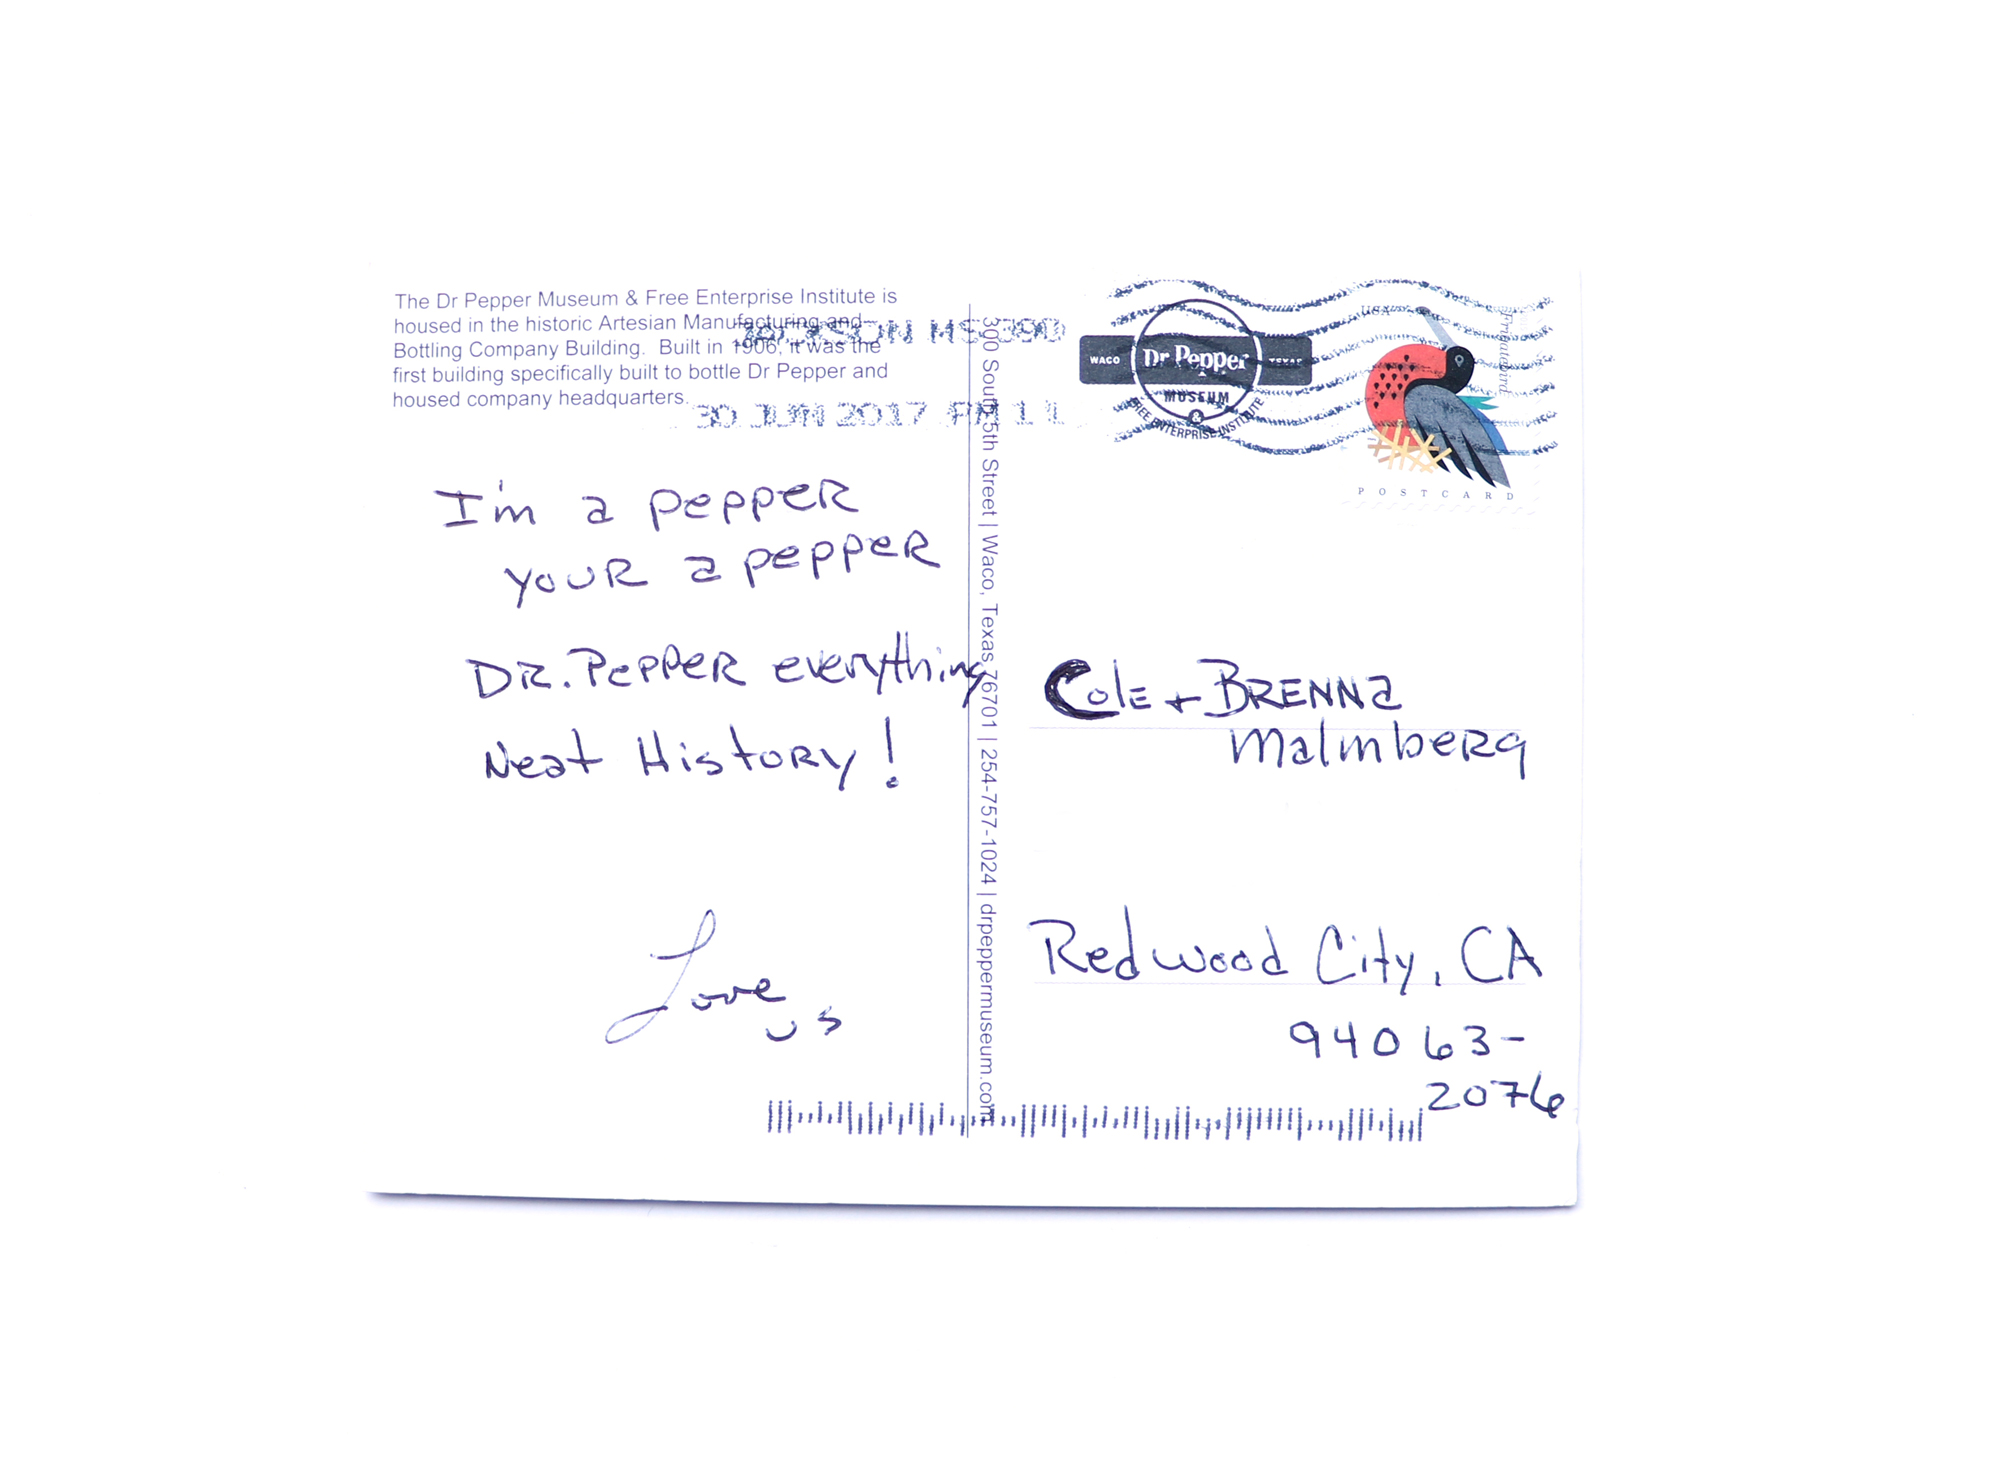 The Dr Pepper Museum & Free Enterprise Institute is
housed in the historic Artesian Manufacturing and
Bottling Company Building. Built in 1906, it was the
first building specifically built to bottle Dr Pepper and
housed company headquarters.
JACKSON MS 390
30 JUN 2017 PM 11
I'm a pepper
your a pepper
DR. Pepper everything
Neat History!
Love
us
300 South 5th Street | Waco, Texas 76701 | 254-757-1024 | drpeppermuseum.com
WACO Dr Pepper TEXAS
MUSEUM
FREE ENTERPRISE INSTITUTE
USA
Frigatebird
POSTCARD
Cole + BRENNa
Malmberg
Redwood City, CA
94063-
2076